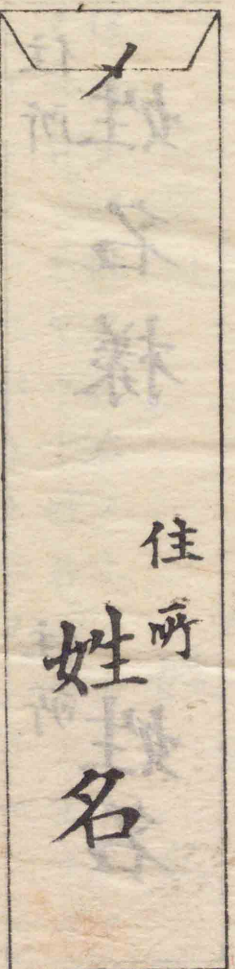 〆
住所
姓名